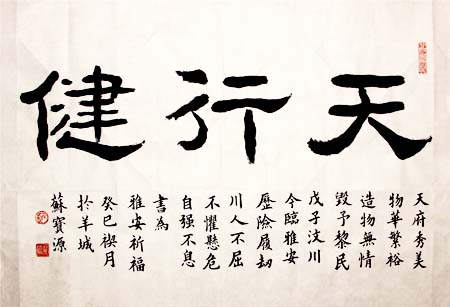 天行健
天府秀美
物華繁裕
造物無情
毀予黎民
戊子汶川
今臨雅安
歷險履劫
川人不屈
不懼懸危
自强不息
書為
雅安祈福
癸巳禊月
於羊城
蘇寶源